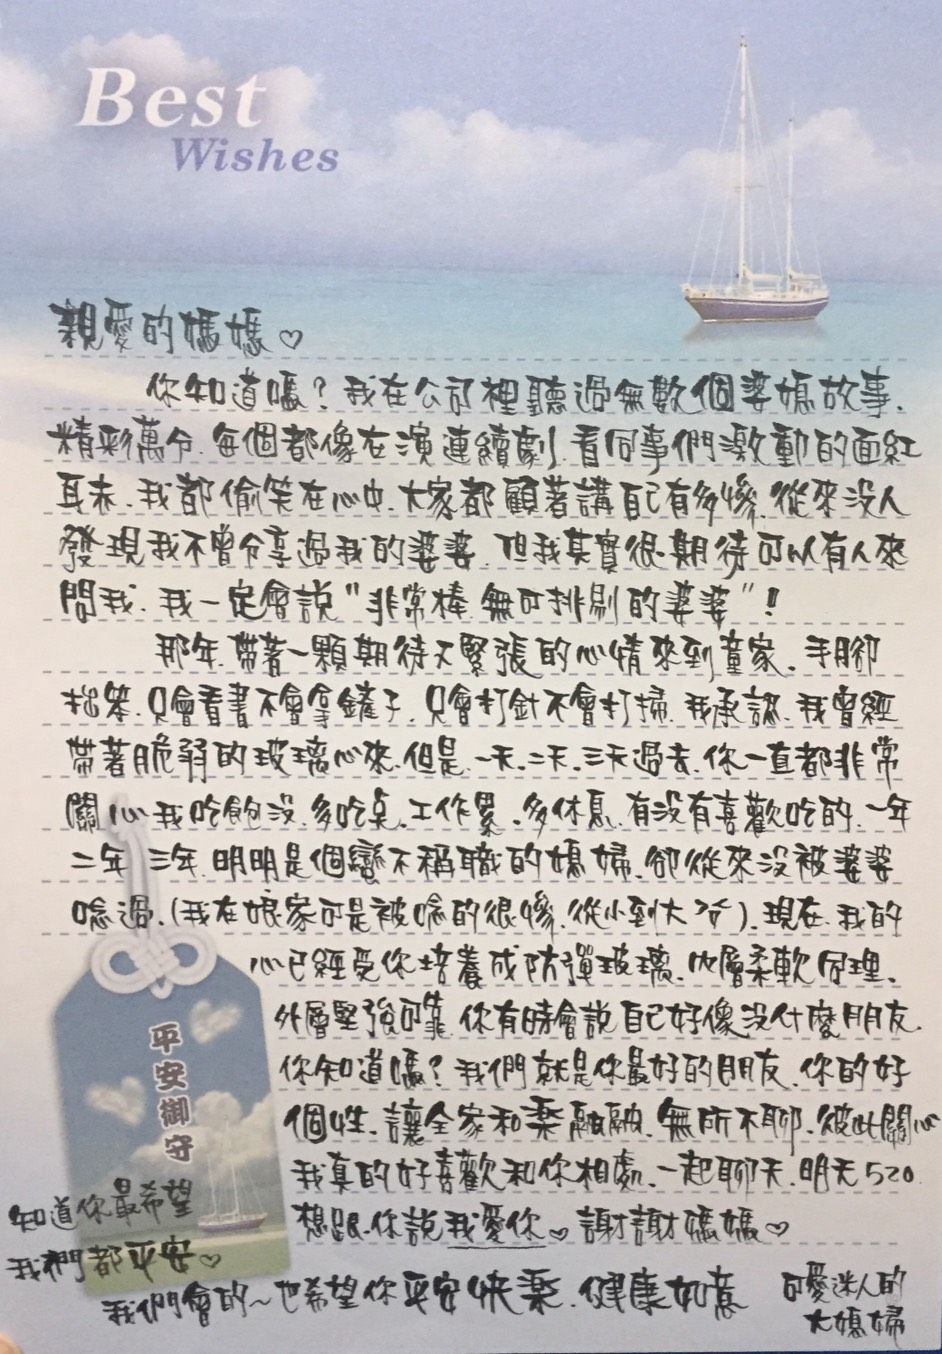 Best
Wishes
親愛的媽媽♡
你知道嗎？我在公司裡聽過無數個婆媳故事、
精彩萬分、每個都像在演連續劇、看同事們激動的面紅
耳赤、我都偷笑在心中、大家都顧著講自己有多慘、從來沒人
發現我不曾分享過我的婆婆、但我其實很期待可以有人來
問我、我一定會說"非常棒、無可挑剔的婆婆"！
那年、帶著一顆期待又緊張的心情來到童家、手腳
拙笨、只會看書不會拿鏟子、只會打針不會打掃、我承認、我曾經
帶著脆弱的玻璃心來、但是、一天、二天、三天過去、你一直都非常
關心我吃飽沒、多吃點、工作累、多休息、有沒有喜歡吃的、一年
二年、三年、明明是個蠻不稱職的媳婦、卻從來沒被婆婆
唸過、(我在娘家可是被唸的很慘、從小到大ㄋㄟ)、現在、我的
心已經受你培養成防彈玻璃、內層柔軟同理、
外層堅強可靠、你有時會說自己好像沒什麼朋友、
你知道嗎？我們就是你最好的朋友、你的好
個性、讓全家和樂融融、無所不聊、彼此關心
我真的好喜歡和你相處、一起聊天、明天520
想跟你說我愛你♡謝謝媽媽♡
平安御守
知道你最希望
我們都平安♡
我們會的~也希望你平安快樂、健康如意
可愛迷人的
大媳婦